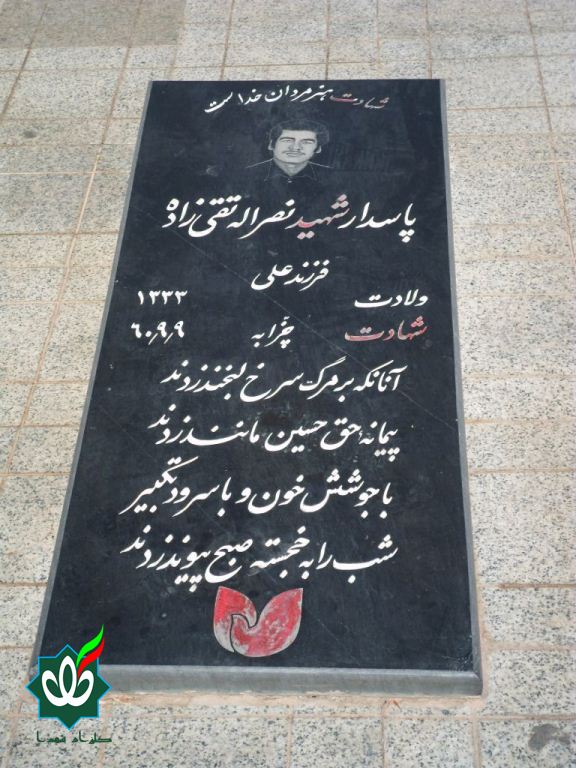 شهادت هنر مردان خداست
پاسدار شهید نصراله تقی زاده
فرزند علی
ولادت ۱۳۳۳
شهادت چزّابه ۶۰٫۹٫۹
آنانکه بر مرگ سرخ لبخند زدند
پیمانه حق حسین مانند زدند
با جوشش خون و با سرود تکبیر
شب را به خجسته صبح پیوند زدند